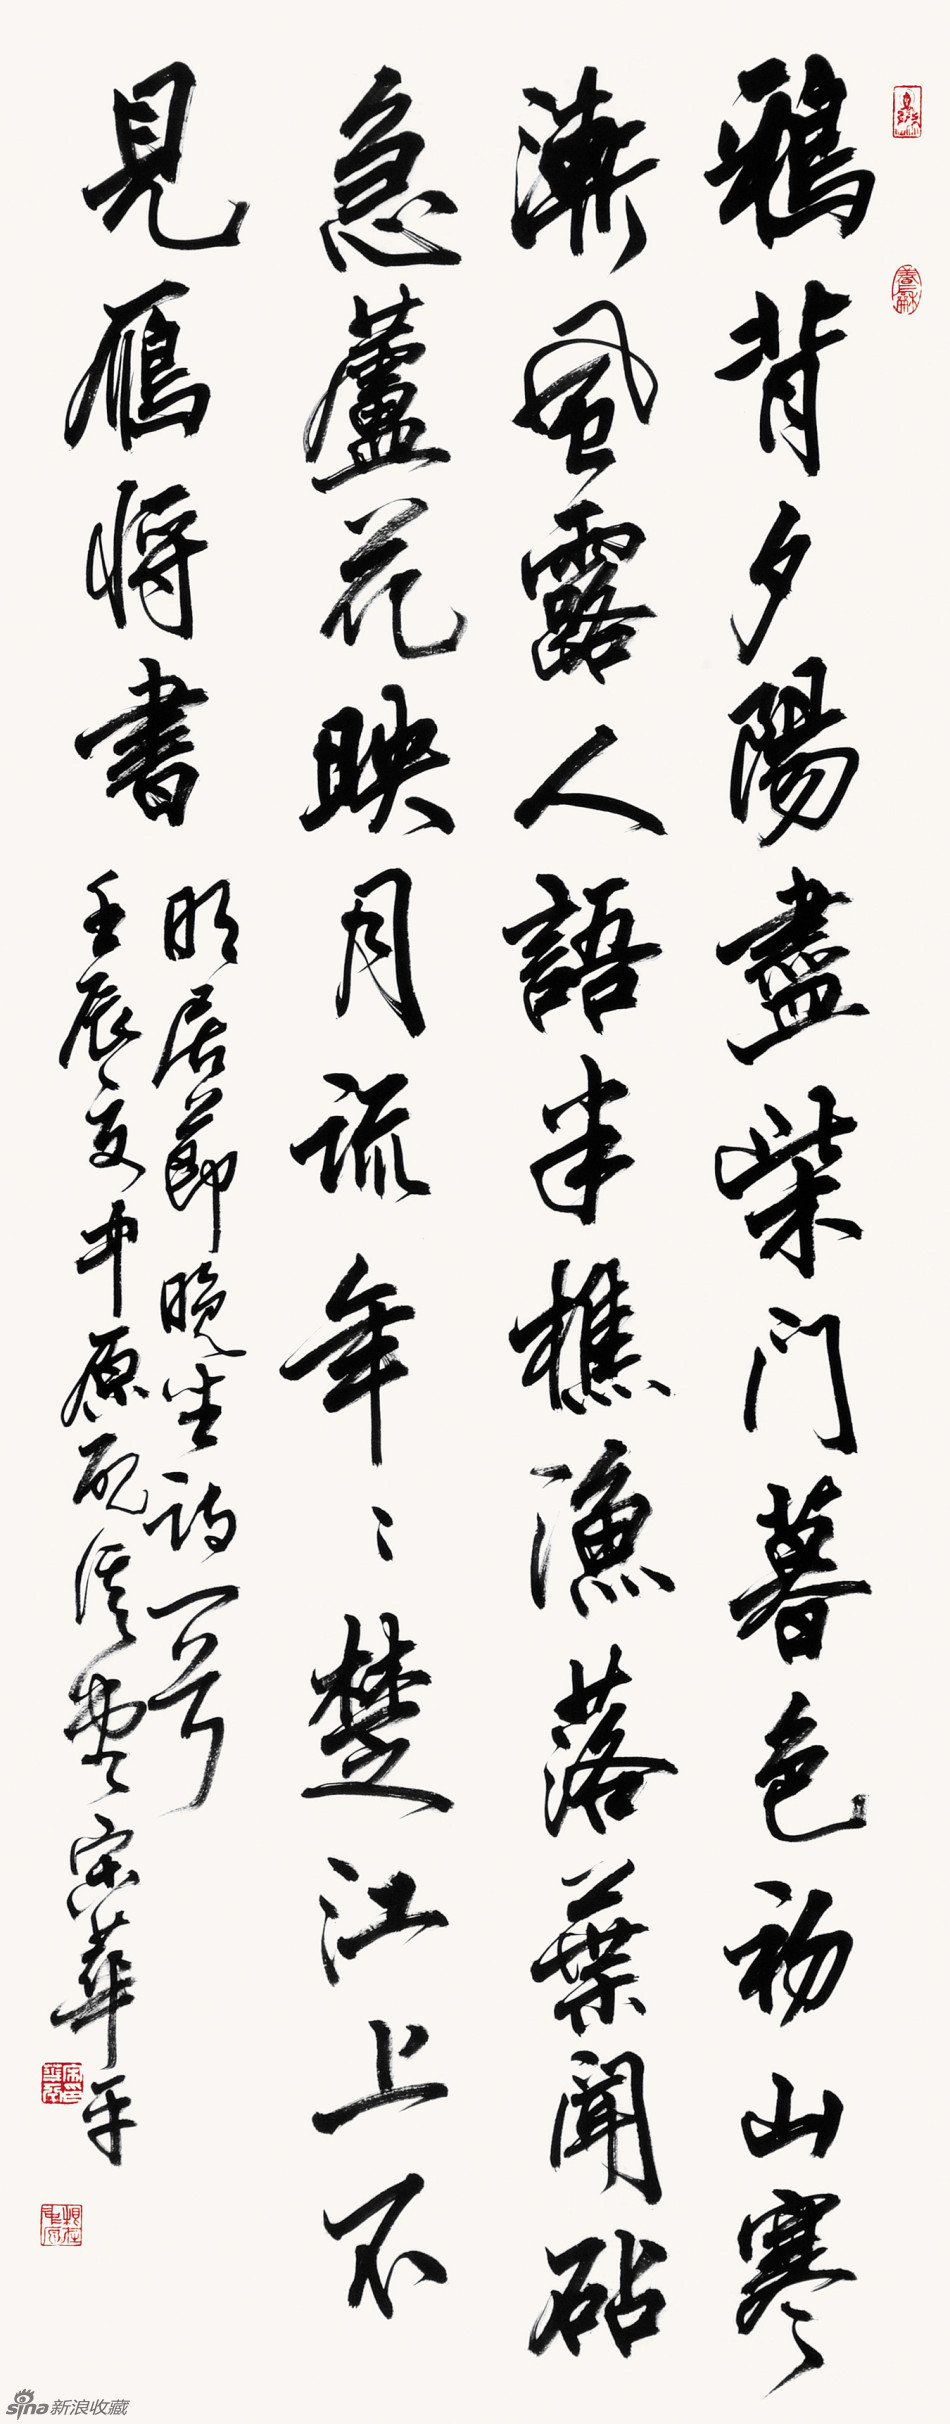 鴉背夕陽盡柴門暮色初山寒
漸風露人語半樵漁落葉聞砧
急蘆花映月疏年〻楚江上不
見鴈將書
明居節晚坐詩一首
壬辰夏中原宋華平
sina新浪收藏